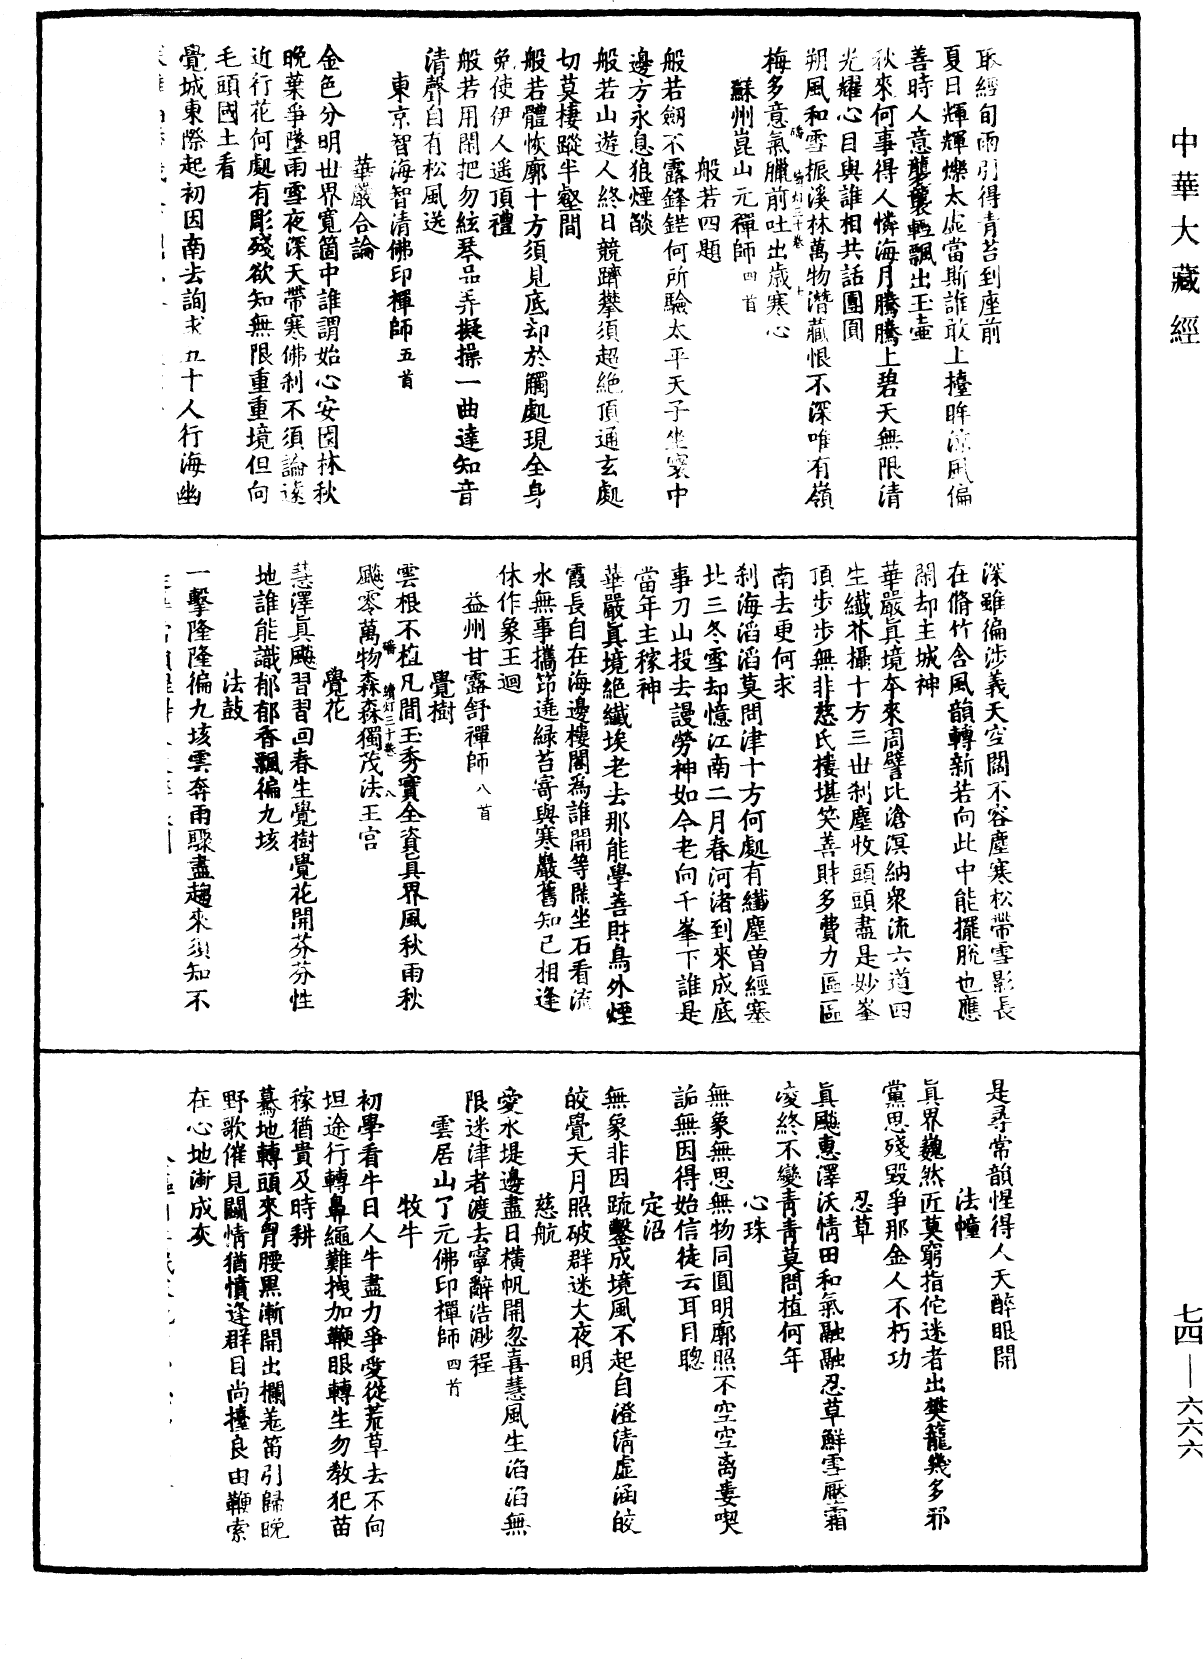 中華大藏經
取經旬雨引得青苔到座前
夏日輝輝爍太虛當斯誰敢上擡眸涼風偏
善時人意襲襲輕飄出玉壺
秋來何事得人憐海月騰騰上碧天無限清
光耀心目與誰相共話團圓
朔風和雪振溪林萬物潛藏恨不深唯有嶺
梅多意氣臘前吐出歲寒心
蘇州崑山元禪師四首
般若四題
般若劒不露鋒鋩何所驗太平天子坐寰中
邊方永息狼煙燄
般若山遊人終日競躋攀須超絕頂通玄處
切莫棲蹤半壑間
般若體恢廓十方須見底却於觸處現全身
免使伊人遥頂禮
般若用閑把勿絃琴品弄擬操一曲達知音
清聲自有松風送
東京智海智清佛印禪師五首
華嚴合論
金色分明世界寬箇中誰謂始心安園林秋
晚葉爭墜雨雪夜深天帶寒佛刹不須論遠
近行花何處有彫殘欲知無限重重境但向
毛頭國土看
覺城東際起初因南去詢求五十人行海幽
深雖徧涉義天空闊不容塵寒松帶雪影長
在脩竹含風韻轉新若向此中能擺脫也應
閙却主城神
華嚴真境本來周譬比滄溟納衆流六道四
生纖芥攝十方三世刹塵收頭頭盡是妙峯
頂步步無非慈氏樓堪笑善財多費力區區
南去更何求
刹海滔滔莫問津十方何處有纖塵曾經塞
北三冬雪却憶江南二月春河渚到來成底
事刀山投去謾勞神如今老向千峯下誰是
當年主稼神
華嚴真境絕纖埃老去那能學善財鳥外煙
霞長自在海邊樓閣爲誰開等閑坐石看流
水無事攜笻遶綠苔寄與寒巖舊知己相逢
休作象王迴
益州甘露舒禪師八首
覺樹
雲根不植凡間玉秀實全資真界風秋雨秋
颷零萬物森森獨茂法王宫
覺花
慧澤真颷習習回春生覺樹覺花開芬芬性
地誰能識郁郁香飄徧九垓
法鼓
一擊隆隆徧九垓雲奔雨驟盡趨來須知不
是尋常韻惺得人天醉眼開
法幢
真界巍然匠莫窮指佗迷者出樊籠幾多邪
黨思殘毀爭那金人不朽功
忍草
真颷惠澤沃情田和氣融融忍草鮮雪壓霜
凌終不變青青莫問植何年
心珠
無象無思無物同圓明廓照不空空离婁喫
詬無因得始信徒云耳目聰
定沼
無象非因疏鑿成境風不起自澄清虛涵皎
皎覺天月照破群迷大夜明
慈航
愛水堤邊盡日橫帆開忽喜慧風生滔滔無
限迷津者渡去寧辭浩渺程
雲居山了元佛印禪師四首
牧牛
初學看牛日人牛盡力爭愛從荒草去不向
坦途行轉鼻繩難拽加鞭眼轉生勿教犯苗
稼猶貴及時耕
驀地轉頭來胷腰黑漸開出欄羌笛引歸晚
野歌催見鬪情猶憤逢群目尚擡良由鞭索
在心地漸成灰
七四—六六六